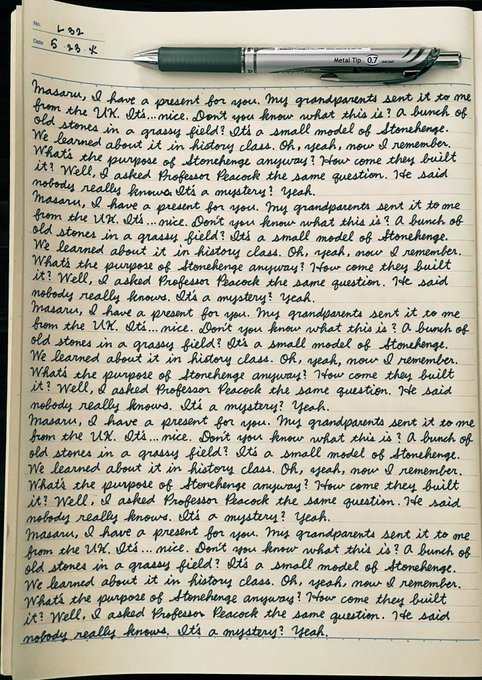 No. L 32
Date 5 · 23 · 木
Metal Tip 0.7
Masaru, I have a present for you. My grandparents sent it to me
from the UK. It's...nice. Don't you know what this is? A bunch of
old stones in a grassy field? It's a small model of Stonehenge.
We learned about it in history class. Oh, yeah, now I remember.
What's the purpose of Stonehenge anyway? How come they built
it? Well, I asked Professor Peacock the same question. He said
nobody really knows. It's a mystery? Yeah.
Masaru, I have a present for you. My grandparents sent it to me
from the UK. It's...nice. Don't you know what this is? A bunch of
old stones in a grassy field? It's a small model of Stonehenge.
We learned about it in history class. Oh, yeah, now I remember.
What's the purpose of Stonehenge anyway? How come they built
it? Well, I asked Professor Peacock the same question. He said
nobody really knows. It's a mystery? Yeah.
Masaru, I have a present for you. My grandparents sent it to me
from the UK. It's...nice. Don't you know what this is? A bunch of
old stones in a grassy field? It's a small model of Stonehenge.
We learned about it in history class. Oh, yeah, now I remember.
What's the purpose of Stonehenge anyway? How come they built
it? Well, I asked Professor Peacock the same question. He said
nobody really knows. It's a mystery? Yeah.
Masaru, I have a present for you. My grandparents sent it to me
from the UK. It's...nice. Don't you know what this is? A bunch of
old stones in a grassy field? It's a small model of Stonehenge.
We learned about it in history class. Oh, yeah, now I remember.
What's the purpose of Stonehenge anyway? How come they built
it? Well, I asked Professor Peacock the same question. He said
nobody really knows. It's a mystery? Yeah.
Masaru, I have a present for you. My grandparents sent it to me
from the UK. It's...nice. Don't you know what this is? A bunch of
old stones in a grassy field? It's a small model of Stonehenge.
We learned about it in history class. Oh, yeah, now I remember.
What's the purpose of Stonehenge anyway? How come they built
it? Well, I asked Professor Peacock the same question. He said
nobody really knows. It's a mystery? Yeah.